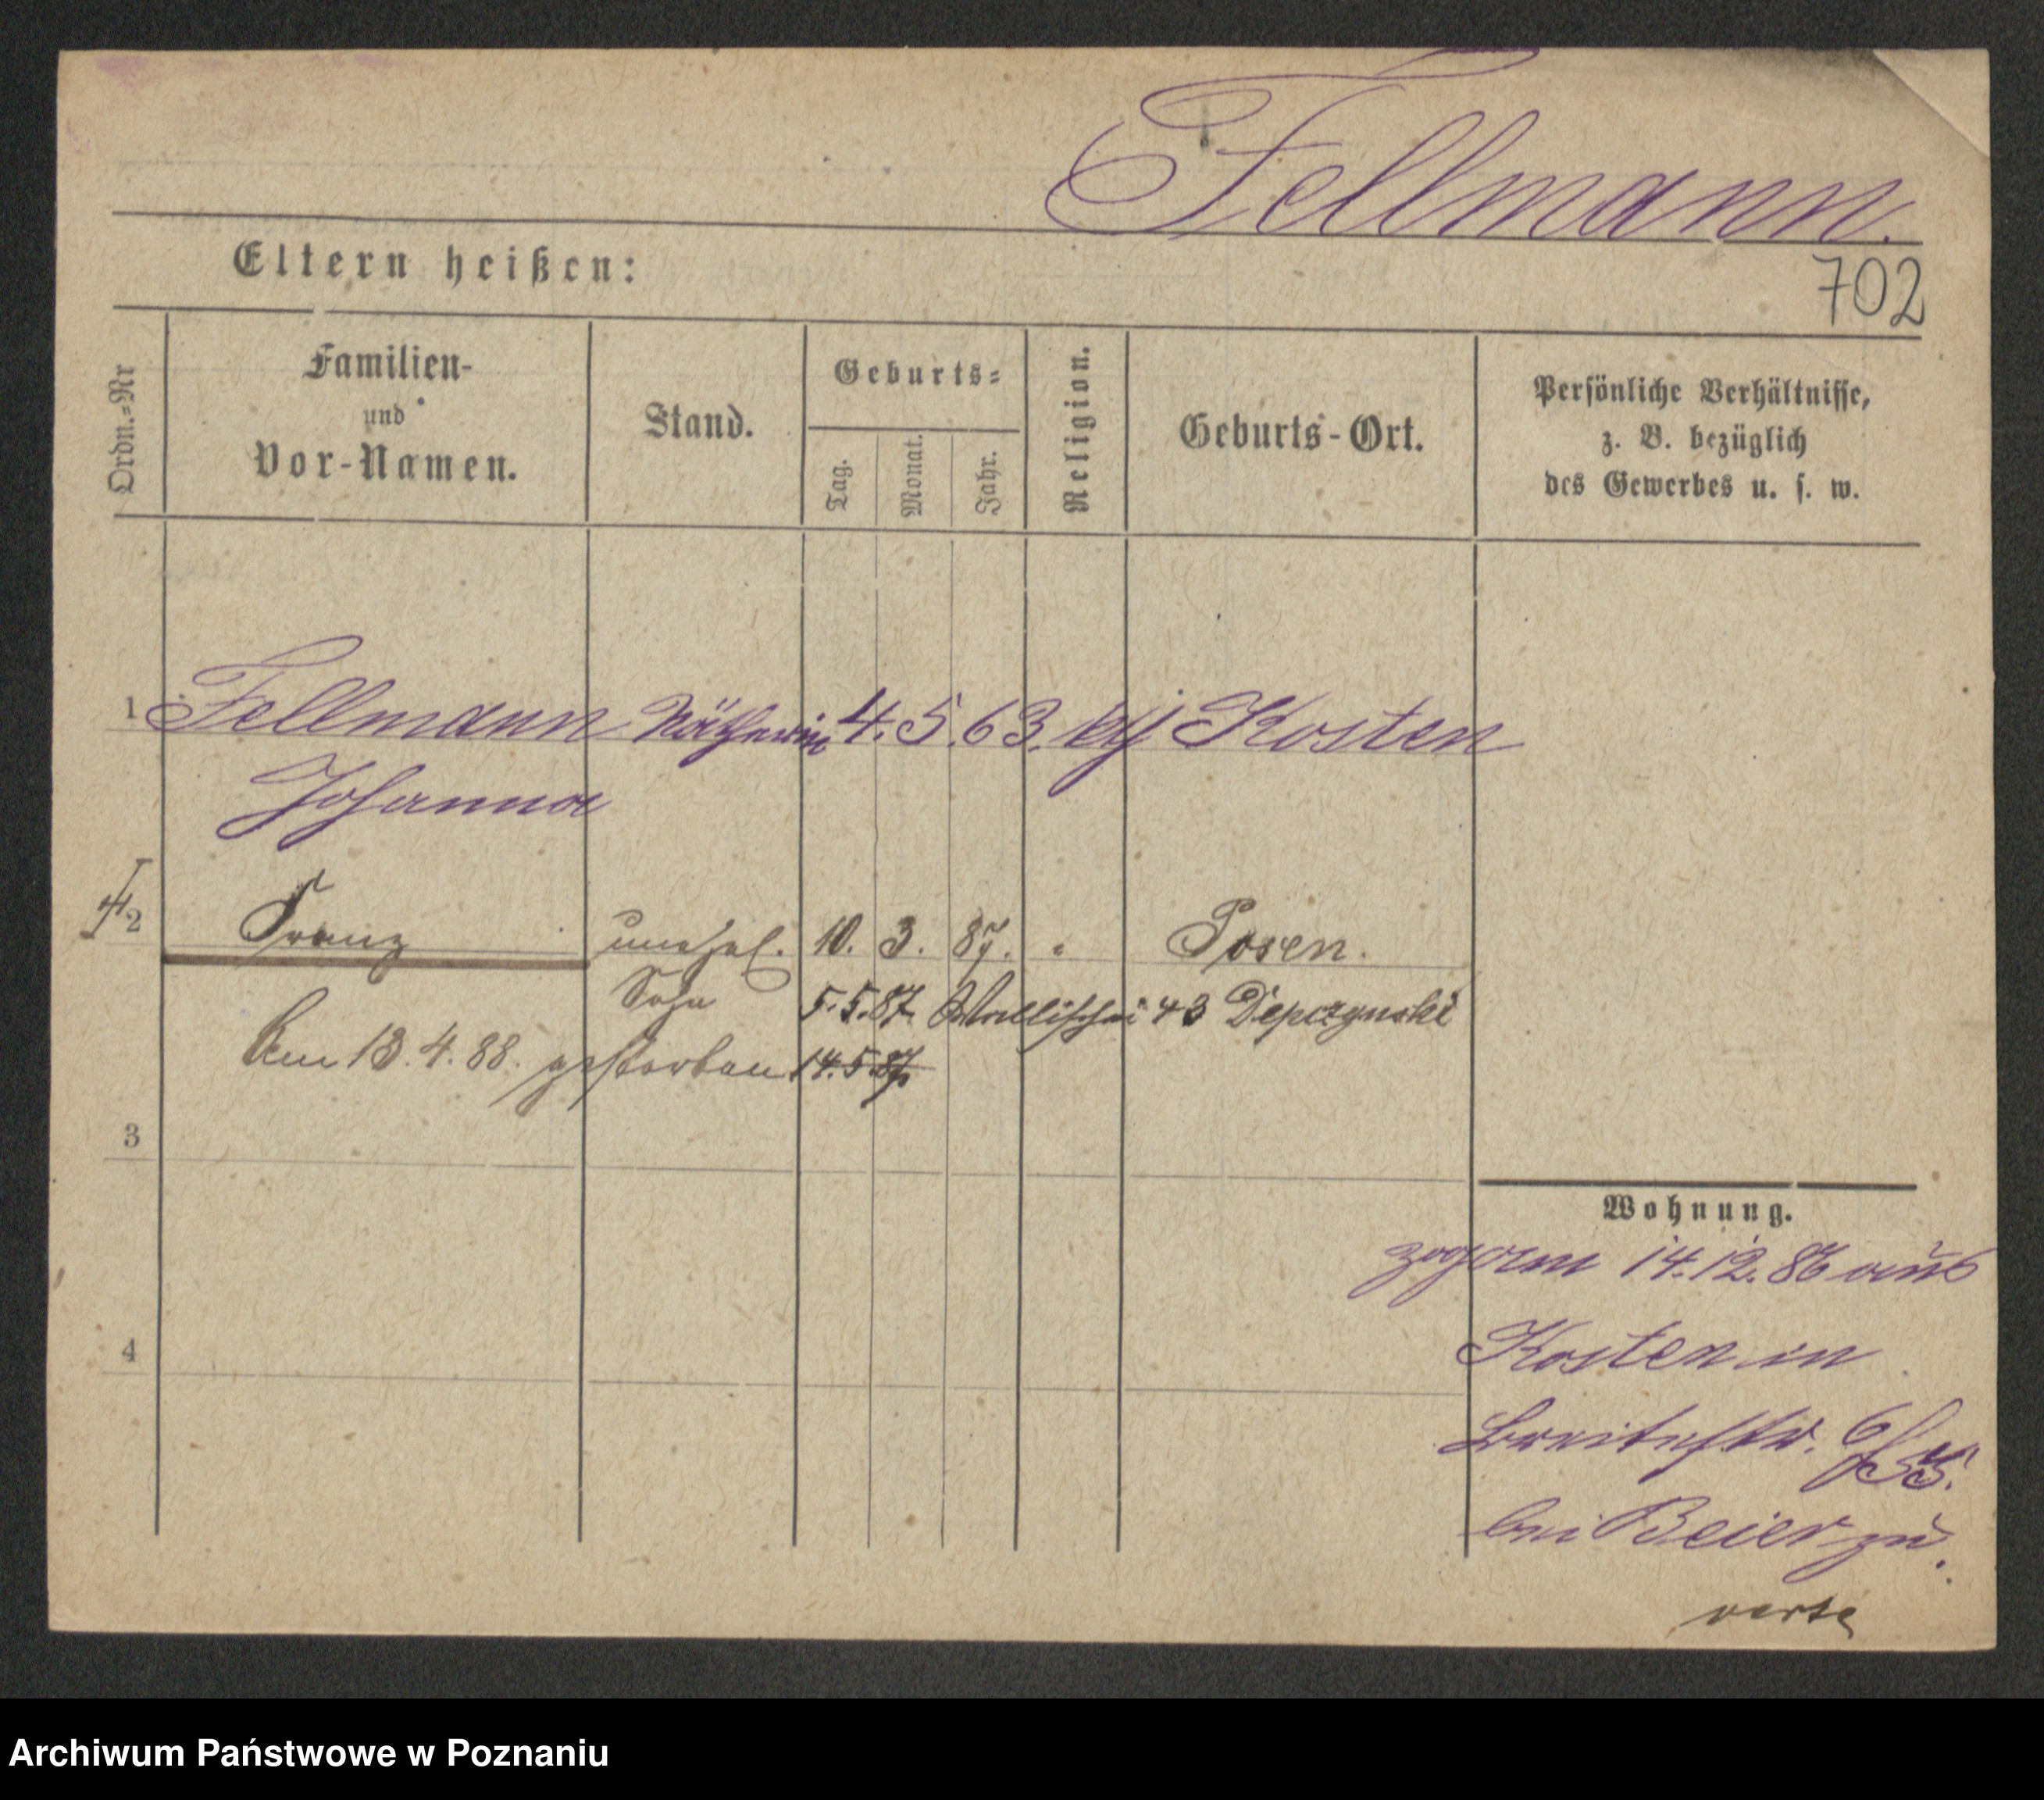 Fellmann.
Eltern heißen:
702
Ordn.=Nr
Familien-
und
Vor-Namen.
Stand.
Geburts=
Tag.
Monat.
Jahr.
Religion.
Geburts-Ort.
Persönliche Verhältnisse,
z. B. bezüglich
des Gewerbes u. s. w.
1 Fellmann Nätherin 4. 5. 63. kth Kosten
Johanna
2 Franz unehel. 10. 3. 87. " Posen.
Sohn 5.5.87. Wallischei 43 Depczynski
Am 13.4.88. gestorben 14.5.87
3
Wohnung.
zog am 14.12.86 aus
4
Kosten in
Breitestr.
bei Beier zu.
verte
Archiwum Państwowe w Poznaniu